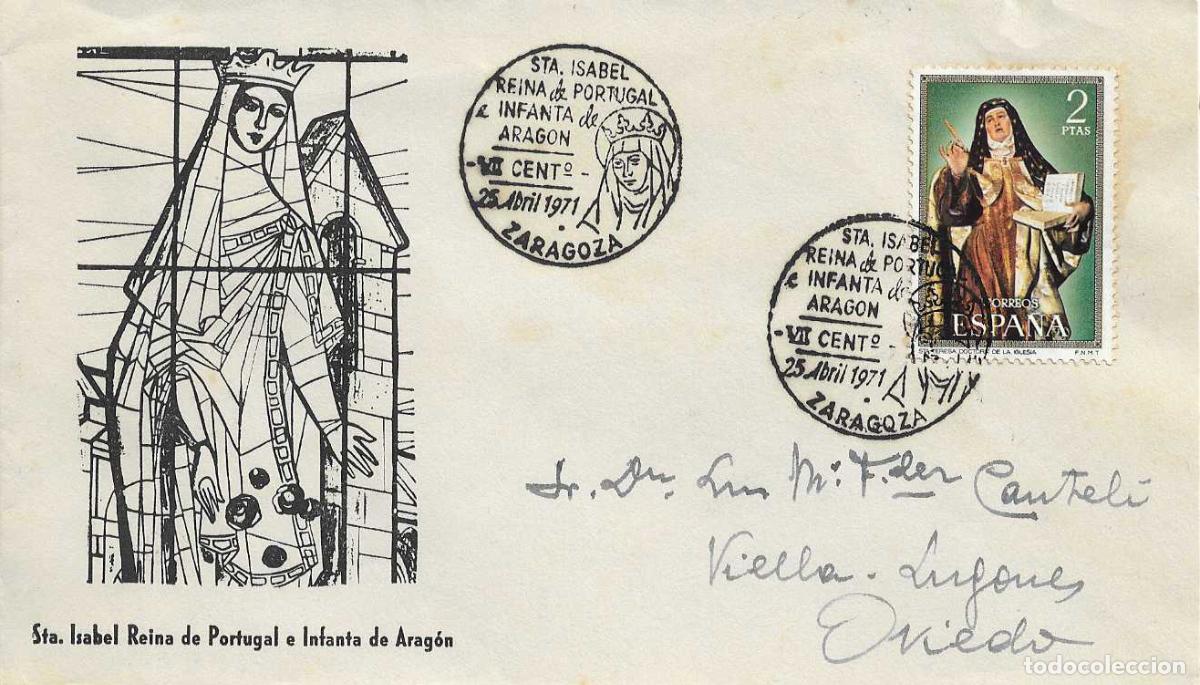 STA. ISABEL
REINA de PORTUGAL
e INFANTA de
ARAGON
-VII CENTº-
25 Abril 1971
ZARAGOZA
2
PTAS
CORREOS
ESPAÑA
STA TERESA DOCTORA DE LA IGLESIA
F.N.M.T
STA. ISABEL
REINA de PORTUG
e INFANTA de
ARAGON
-VII CENTº-
25 Abril 1971
ZARAGOZA
Sr. Dn. Luis Mª F.der Cantelí
Viella. Lugones
Oviedo
Sta. Isabel Reina de Portugal e Infanta de Aragón
todocoleccion